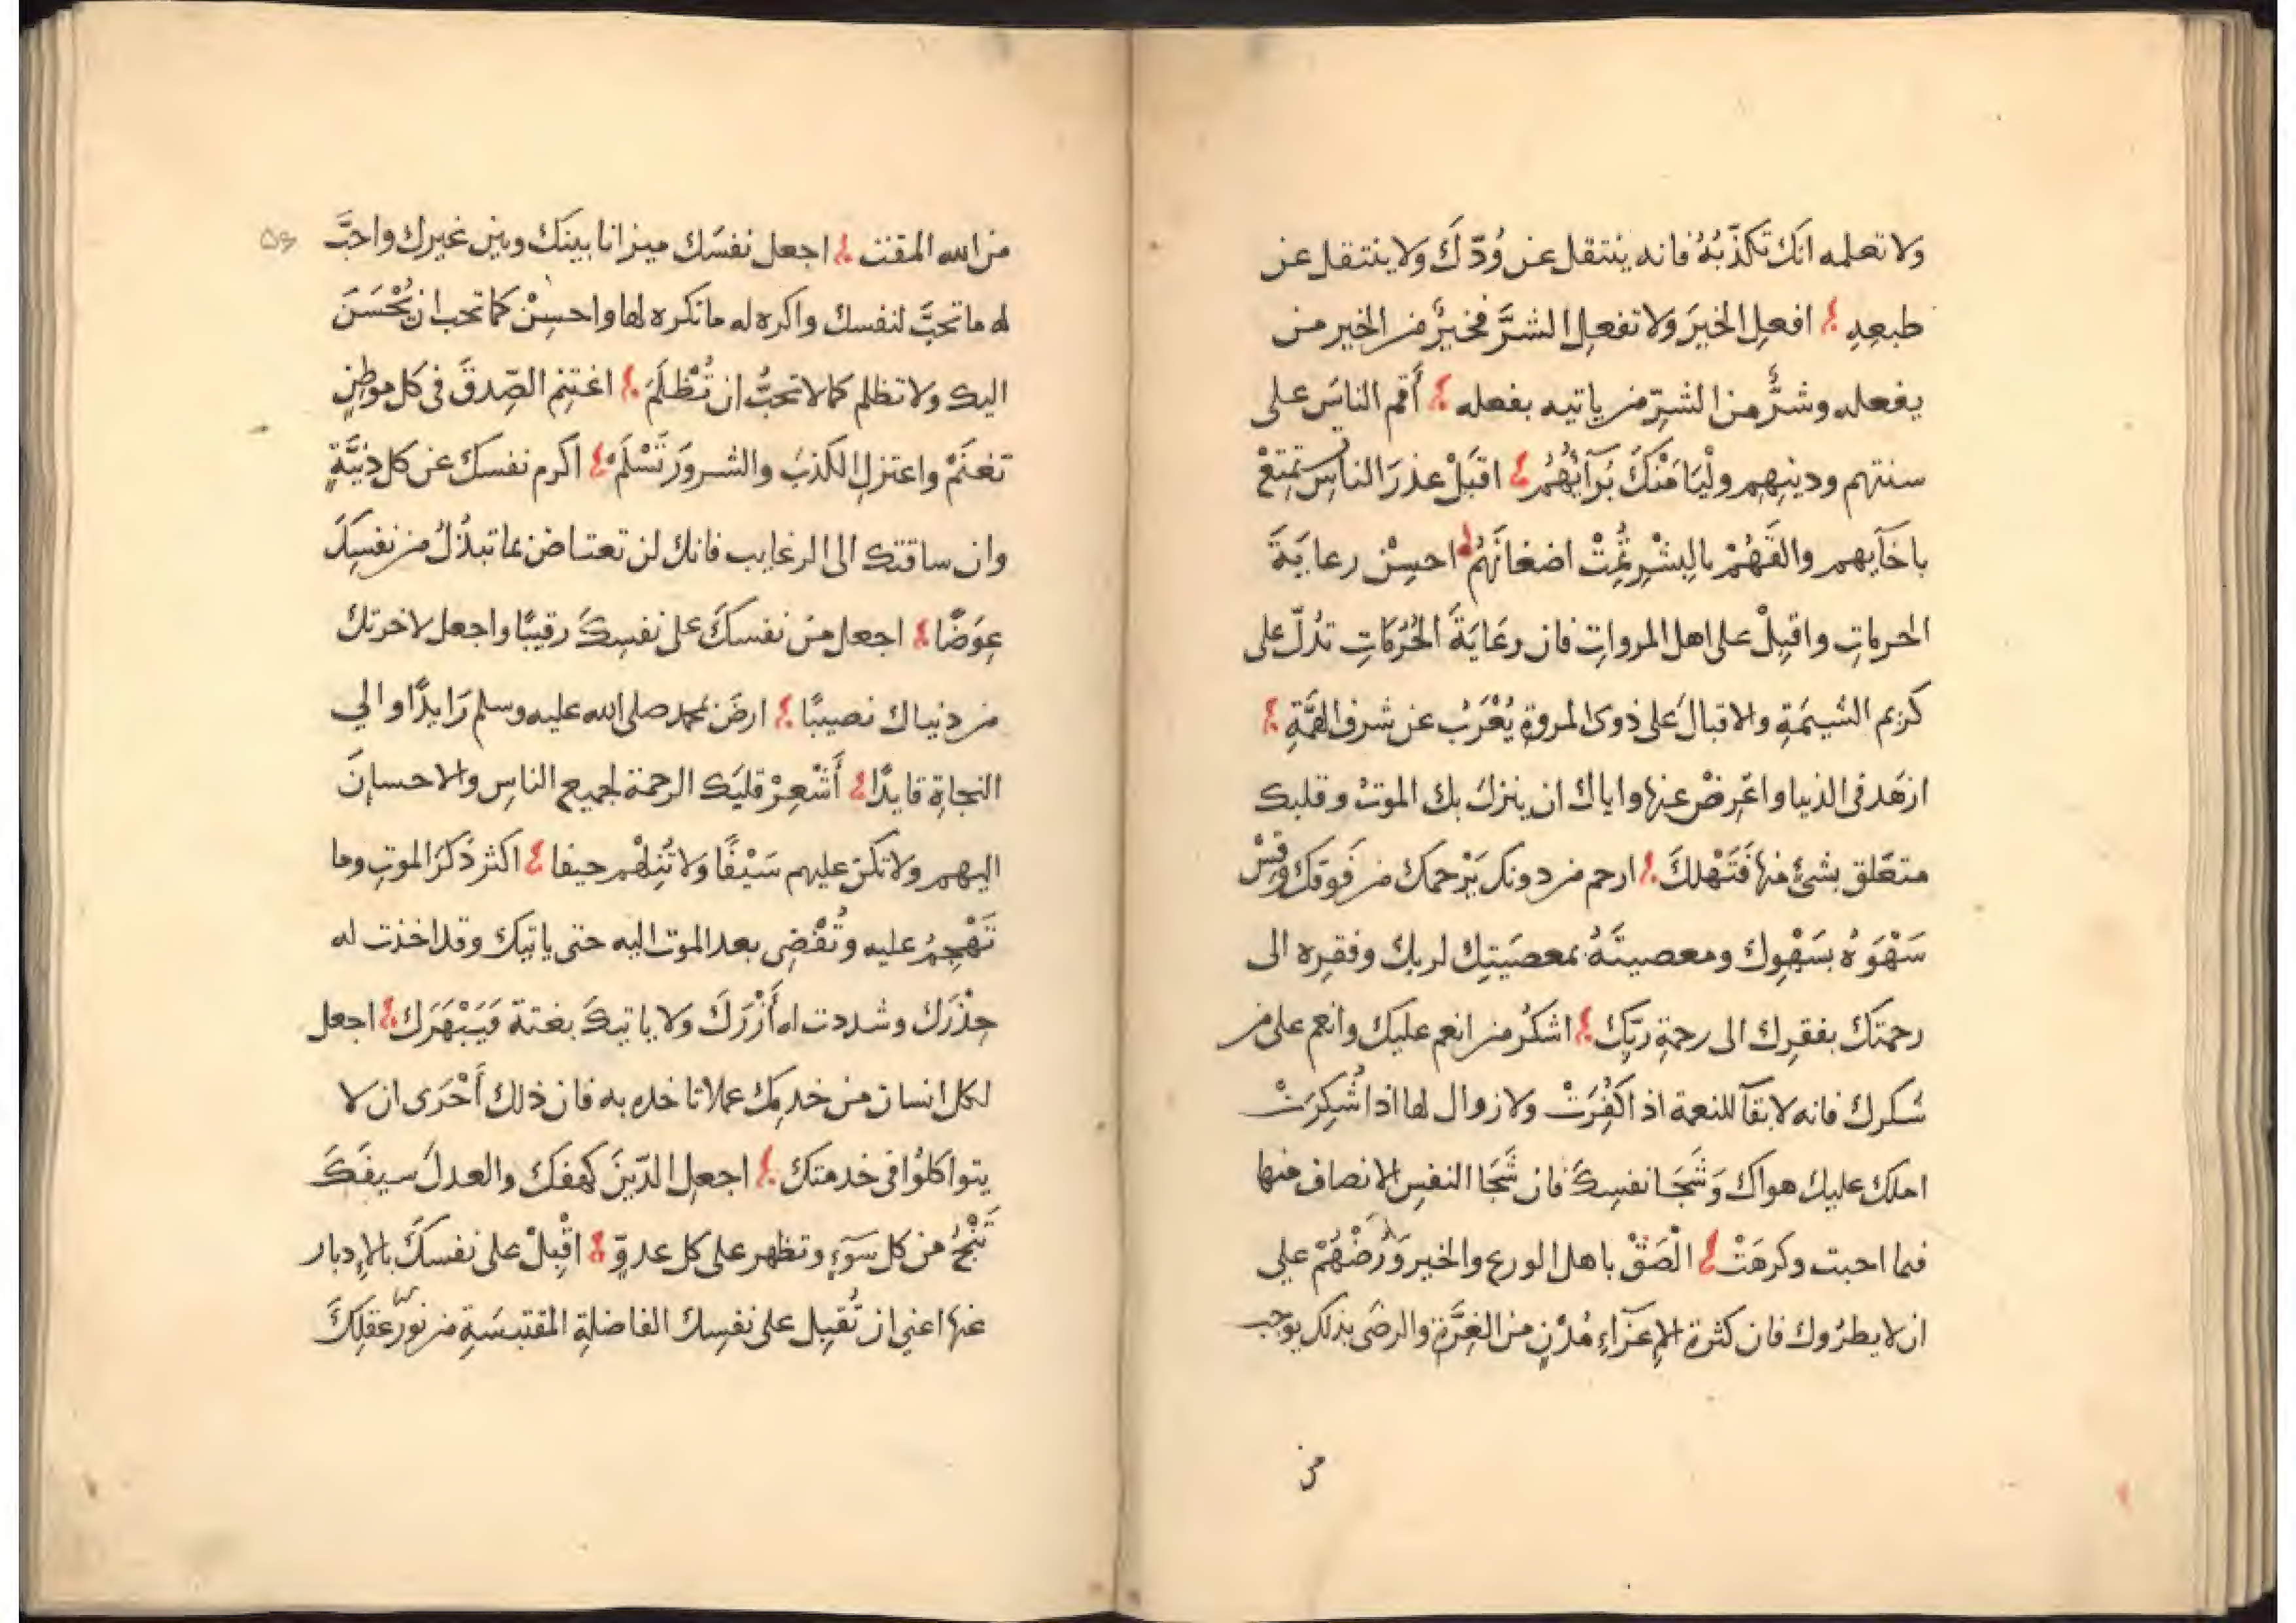 ولا تعلمه انك تكذّبُهُ فانه ينتقل عن وُدّكَ ولا ينتقل عن
طبعِهِ افعلِ الخيرَ ولا تفعلِ الشرَّ فخيرٌ من الخير من
يفعله وشرٌّ من الشرِّ من ياتيه بفعله أَقم الناسَ على
سنتهم ودينِهِم ولْيَامَنْكَ بُرَآئُهُم اقبَلْ عذرَ الناسِ تستمتعْ
باخآيهم والقَهُمْ بالبِشْرِ تُمِتْ اضغانَهُم احسِنْ رعايَةَ
الحرماتِ واقبِلْ على اهل المرواتِ فان رعَايَةَ الحُرُمَاتِ تدُلّ على
كريم الشيمَةِ والاقبالَ على ذوى المروةِ يُعْرَبُ عن شرف الهمَّةِ
ازهَد فى الدنيا واعْرِضْ عنها واياك ان ينزلَ بك الموتُ وقلبك
متعَلق بشئٍ منها فَتَهْلكَ ارحم من دونك يَرْحمك من فَوقكَ وقِسْ
سَهْوَهُ بسَهْوِك ومعصيتَهُ بمعصَيتِك لربك وفقرِه الى
رحمتكَ بفقرِك الى رحمةِ ربّك اشكُر من انعم عليك وانعم على من
شكرك فانه لا بقآ للنعمة اذا كُفِرَتْ ولا زوال لها اذا شُكِرَتْ
املك عليك هواك وَشَجَا نفسِكَ فان شَجَا النفسِ الانصاف منها
فيما احبت وكرهَتْ الْصَقْ باهل الورع والخير وَرُضْهُمْ على
ان لا يطرُوك فان كثرة الإعزَاءِ مُدْنٍ من الغِرَّةِ والرضَى بذلك يوجب
من
من الله المقت اجعل نفسَك ميزانا بينَك وبين غيرك واحبَّ
له ما تحبَّ لنفسك واكره له ما تكره لها واحسِنْ كما تحب ان يُحْسَنَ
اليك ولا تظلم كما لا تحبُّ ان تُظْلَمَ اغتنِم الصِّدقَ فى كل موطنٍ
تغنَمْ واعتزلِ الكذبَ والشرورَ تَسْلَمْ اكرم نفسك عن كل دنيَّةٍ
وان ساقتك الى الرغايب فانك لن تعتاضَ عما تبذُلُ من نفسِكَ
عِوَضًا اجعل من نفسكَ على نفسِكَ رقيبًا واجعل لاخرتك
من دنياك نصيبًا ارضَ بمحمد صلى الله عليه وسلم رَايدًا والي
النجاةِ قايدًا أَشْعِرْ قلبَك الرحمة لجميع الناسِ والاحسانَ
اليهم ولا تكنّ عليهم سَيْفًا ولا تُنِلْهم حيفا اكثر ذكرَ الموتِ وما
تَهْجِمُ عليه وتُفْضِى بعد الموت اليه حتى ياتيك وقد اخذت له
حِذْرَك وشددت له أَزْرَكَ ولا ياتيكَ بغتة فَيَبْهَرَك اجعل
لكل انسان من خدمِك عملا تاخذه به فان ذلك أَحْرَى ان لا
يتواكلُوا فى خدمتك اجعلِ الدّينَ كهفكَ والعدلَ سيفَكَ
تَنْجُ من كل سَوَءٍ وتظهر على كل عدوٍّ اقْبِلْ على نفسكَ بالإدبار
عنها اعني ان تُقبِل على نفسِك الفاضلةِ المقتبسَةِ من نور عقلِكَ